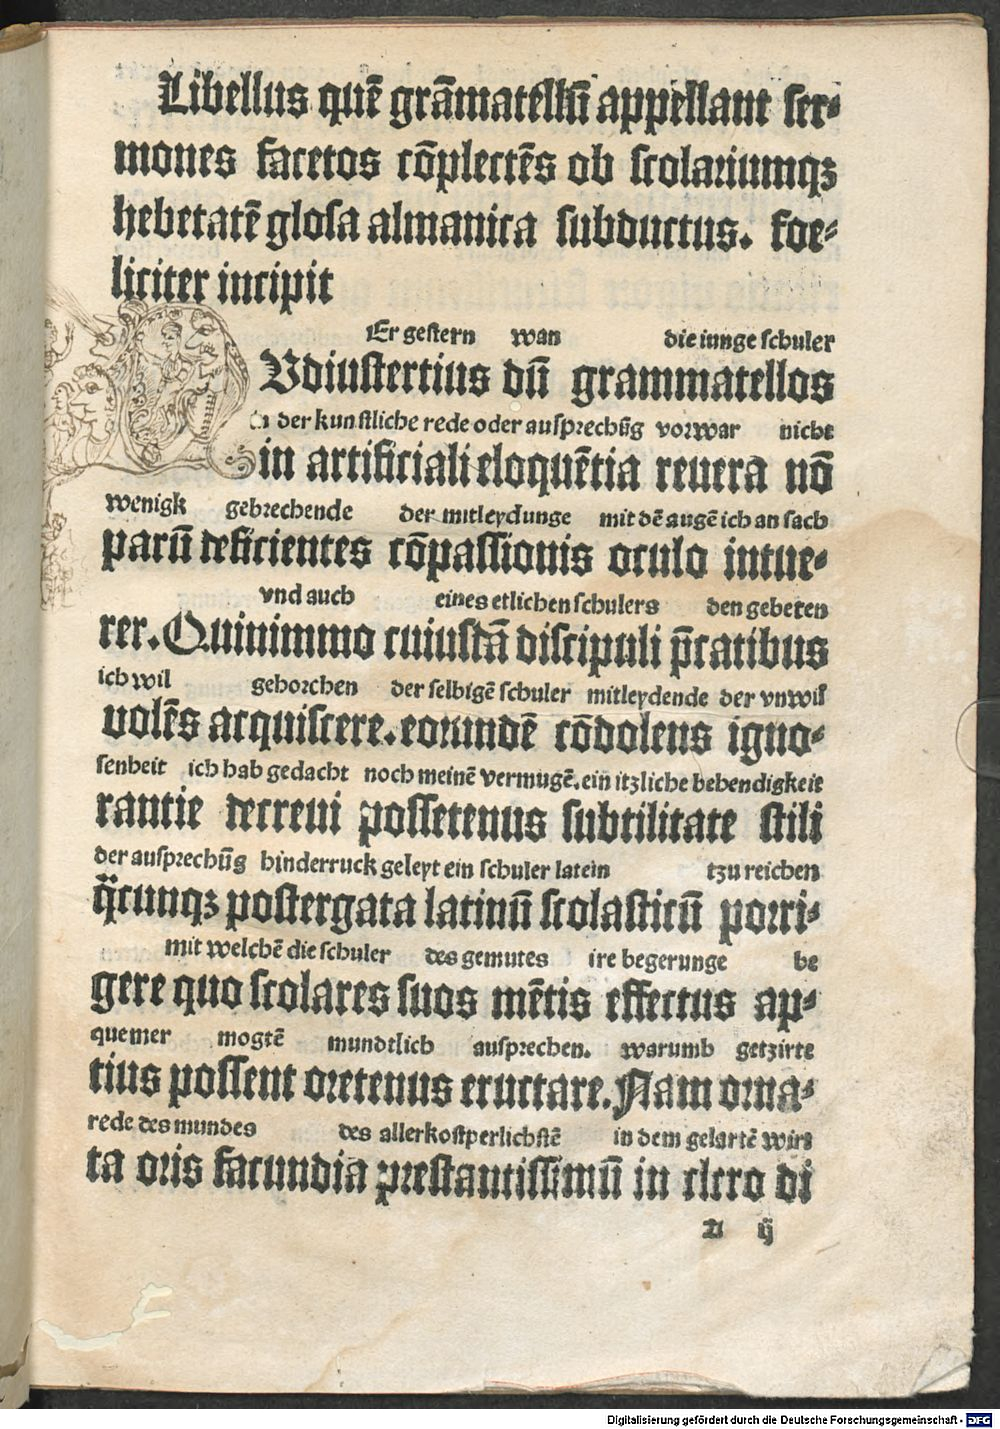 Libellus quē grāmatellū appellant ser⸗
mones facetos cōplectēs ob scolariumqꝫ
hebetatē glosa almanica subductus. foe⸗
liciter incipit
Er gestern wan die iunge schuler
Vdiustertius dū grammatellos
in der kunstliche rede oder ausprechūg vorwar nicht
in artificiali eloquētia revera nō
wenigk gebrechende der mitleydunge mit dē augē ich an sach
parū deficientes cōpassionis oculo intue⸗
vnd auch eines etlichen schulers den gebeten
rer. Quinimmo cuiusdā discipuli p̄catibus
ich wil gehorchen der selbigē schuler mitleydende der vnwis
volēs acquiscere. eorundē cōdolens igno⸗
senheit ich hab gedacht noch meinē vermugē. ein itzliche behendigkeit
rantie decrevi possetenus subtilitate stili
der ausprechūg hinderruck geleyt ein schuler latein tzu reichen
q̄cunqꝫ postergata latinū scolasticū porri⸗
mit welchē die schuler des gemutes ire begerunge be
gere quo scolares suos mētis effectus ap⸗
quemer mogtē mundtlich ausprechen. warumb getzirte
tius possent oretenus eructare. Nam orna⸗
rede des mundes des allerkostperlichstē in dem gelartē wirt
ta oris facundia prestantissimū in clero di
A ij
Digitalisierung gefördert durch die Deutsche Forschungsgemeinschaft - DFG